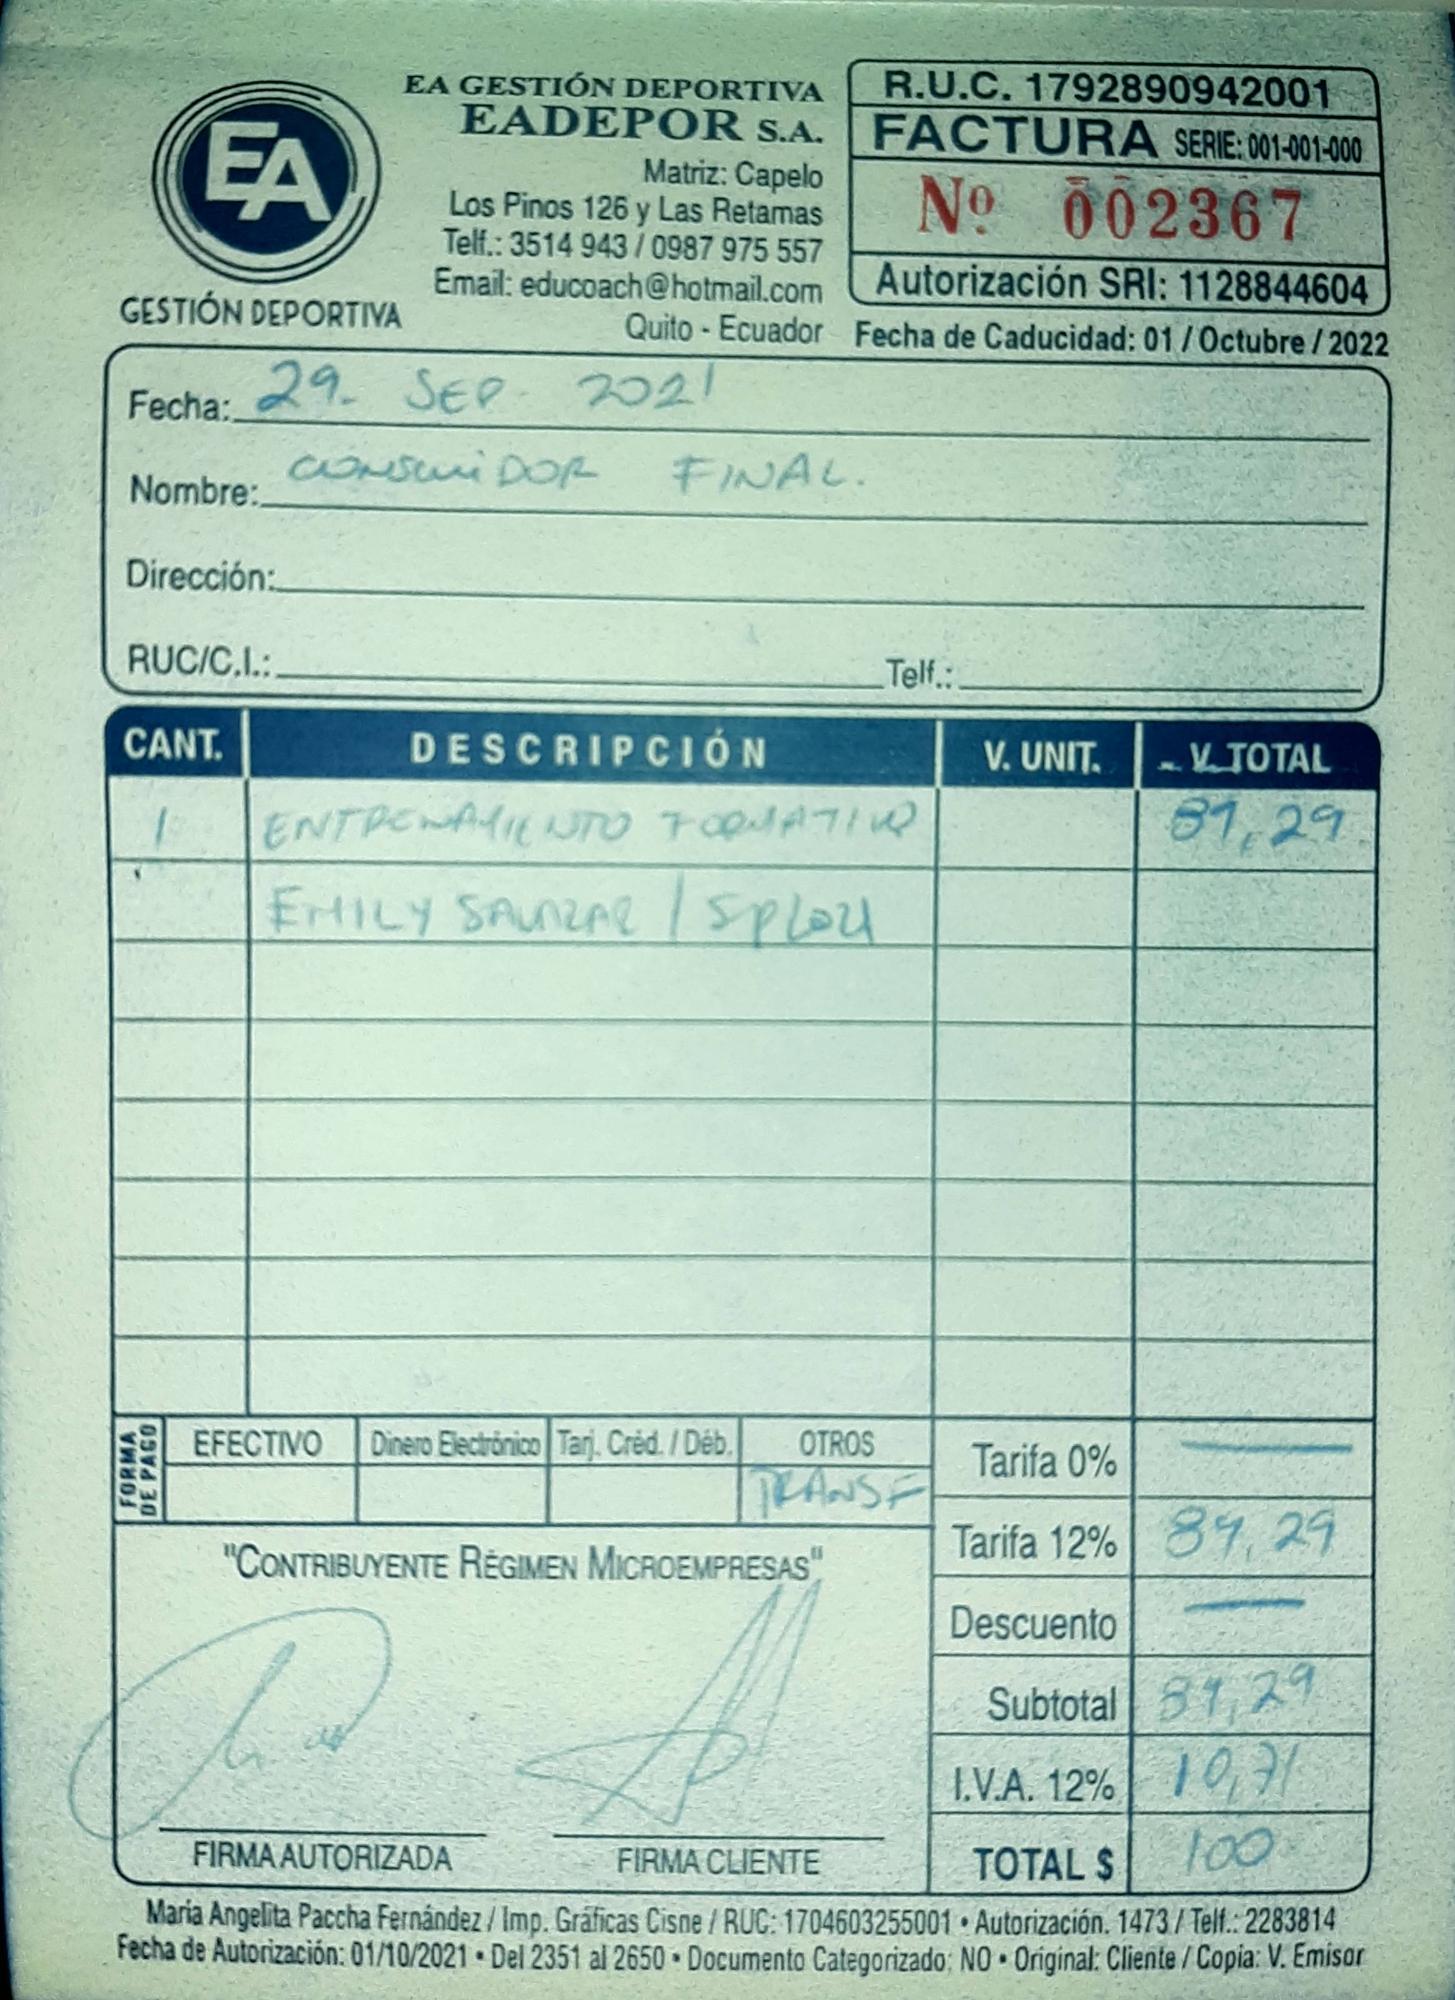 EA
GESTIÓN DEPORTIVA
EA GESTIÓN DEPORTIVA
EADEPOR S.A.
Matriz: Capelo
Los Pinos 126 y Las Retamas
Telf.: 3514 943 / 0987 975 557
Email: educoach@hotmail.com
Quito - Ecuador
R.U.C. 1792890942001
FACTURA SERIE: 001-001-000
Nº 002367
Autorización SRI: 1128844604
Fecha de Caducidad: 01 / Octubre / 2022
Fecha: 29. SEP. 2021
Nombre: CONSUMIDOR FINAL.
Dirección:
RUC/C.I.: Telf.:
CANT. DESCRIPCIÓN V. UNIT. V. TOTAL
1 ENTRENAMIENTO FORMATIVO 89,29
EMILY SALAZAR /
FORMA DE PAGO
EFECTIVO Dinero Electrónico Tarj. Créd. / Déb. OTROS
TRANSF
Tarifa 0% —
Tarifa 12% 89,29
Descuento —
Subtotal 89,29
I.V.A. 12% 10,71
TOTAL $ 100
"CONTRIBUYENTE RÉGIMEN MICROEMPRESAS"
FIRMA AUTORIZADA FIRMA CLIENTE
María Angelita Paccha Fernández / Imp. Gráficas Cisne / RUC: 1704603255001 • Autorización. 1473 / Telf.: 2283814
Fecha de Autorización: 01/10/2021 • Del 2351 al 2650 • Documento Categorizado: NO • Original: Cliente / Copia: V. Emisor